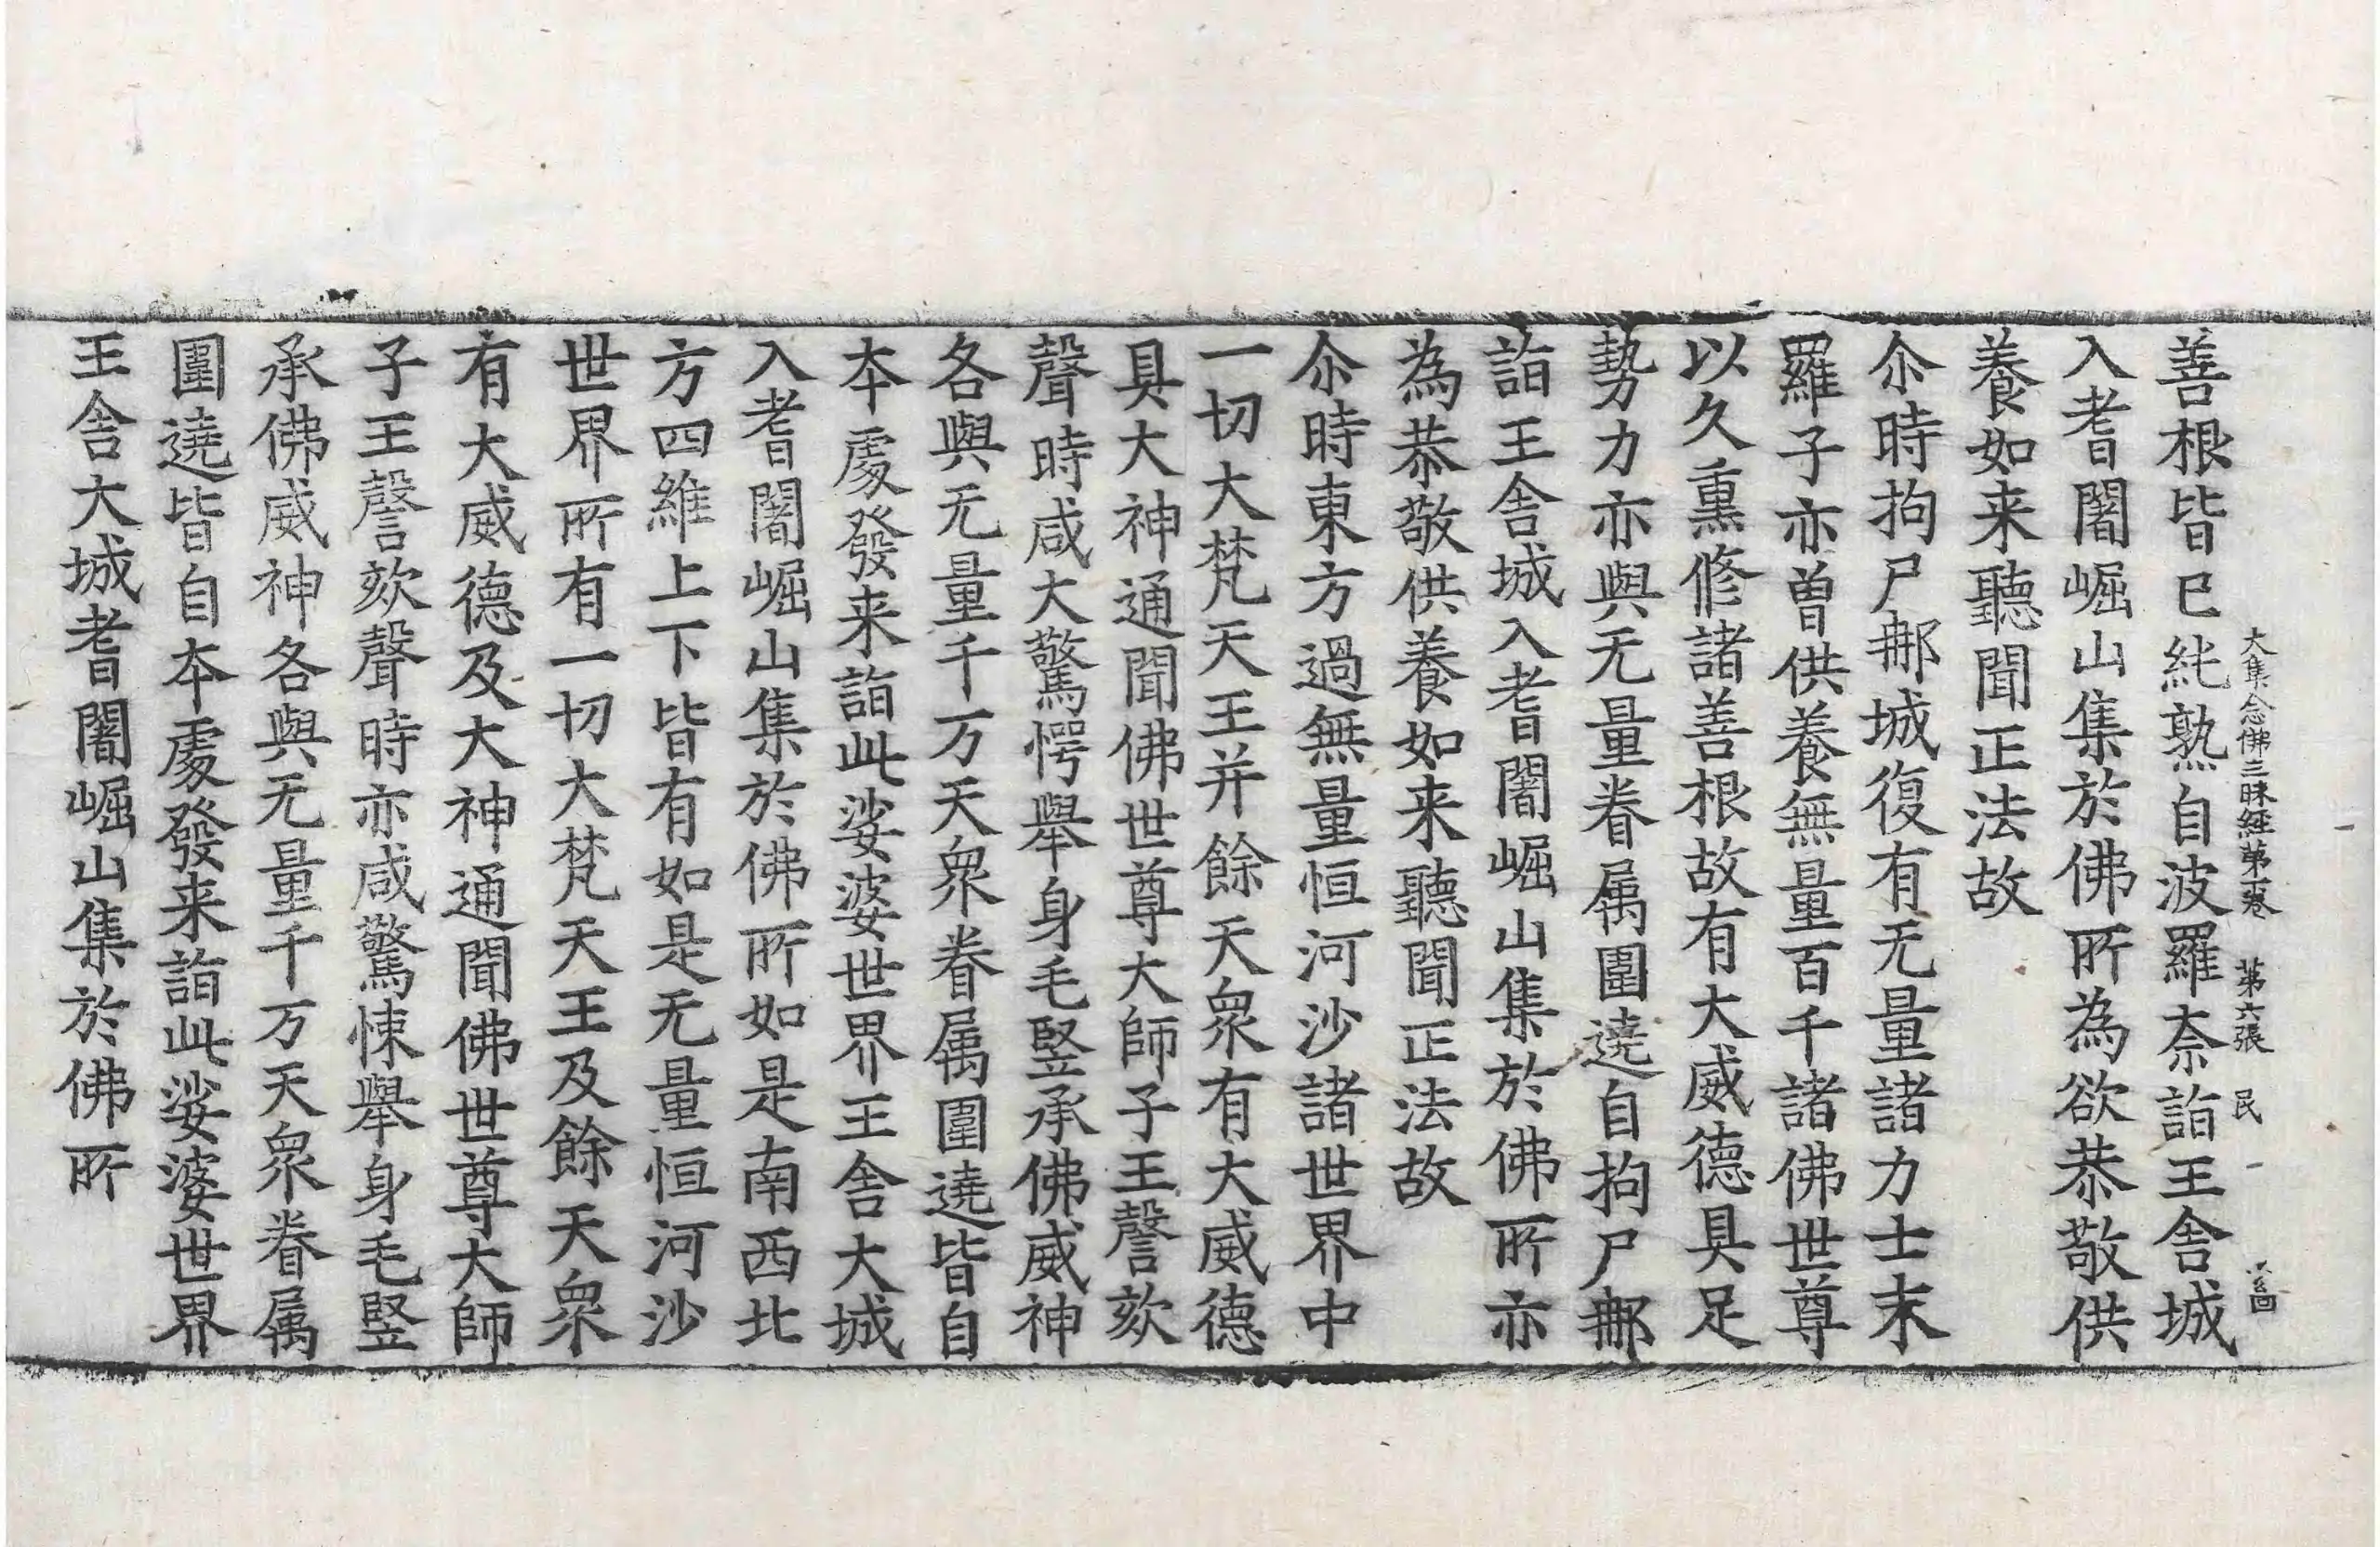 大集念佛三昧經第一卷 第六張 民
善根皆已純熟自波羅柰詣王舍城
入耆闍崛山集於佛所為欲恭敬供
養如来聽聞正法故
尒時拘尸郍城復有无量諸力士末
羅子亦曾供養無量百千諸佛世尊
以久熏修諸善根故有大威德具足
勢力亦與无量眷属圍遶自拘尸郍
詣王舍城入耆闍崛山集於佛所亦
為恭敬供養如来聽聞正法故
尒時東方過無量恒河沙諸世界中
一切大梵天王并餘天衆有大威德
具大神通聞佛世尊大師子王謦欬
聲時咸大驚愕舉身毛竪承佛威神
各與无量千万天衆眷属圍遶皆自
本處發来詣此娑婆世界王舍大城
入耆闍崛山集於佛所如是南西北
方四維上下皆有如是无量恒河沙
世界所有一切大梵天王及餘天衆
有大威德及大神通聞佛世尊大師
子王謦欬聲時亦咸驚悚舉身毛竪
承佛威神各與无量千万天衆眷属
圍遶皆自本處發来詣此娑婆世界
王舍大城耆闍崛山集於佛所